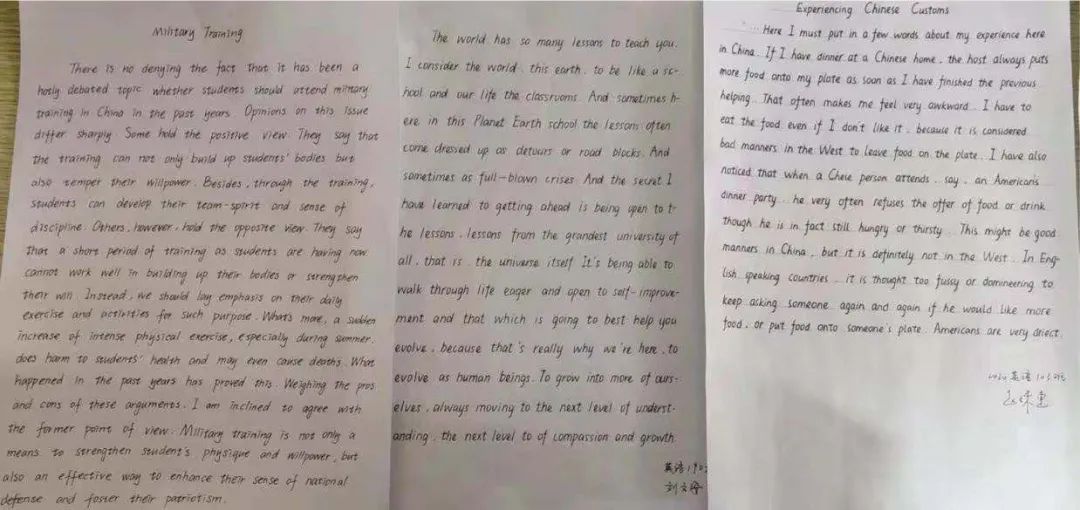 Military Training
There is no denying the fact that it has been a
hotly debated topic whether students should attend military
training in China in the past years. Opinions on this issue
differ sharply. Some hold the positive view. They say that
the training can not only build up students' bodies but
also temper their willpower. Besides, through the training,
students can develop their team-spirit and sense of
discipline. Others, however, hold the opposite view. They say
that a short period of training as students are having now
cannot work well in building up their bodies or strengthen
their will. Instead, we should lay emphasis on their daily
exercise and activities for such purpose. What's more, a sudden
increase of intense physical exercise, especially during summer.
does harm to students' health and may even cause deaths. What
happened in the past years has proved this. Weighing the pros
and cons of these arguments. I am inclined to agree with
the former point of view. Military training is not only a
means to strengthen student's physique and willpower, but
also an effective way to enhance their sense of national
defense and foster their patriotism.
The world has so many lessons to teach you.
I consider the world, this earth, to be like a sc-
hool and our life the classrooms. And sometimes h-
ere in this Planet Earth school the lessons often
come dressed up as detours or road blocks. And
sometimes as full-blown crises. And the secret I
have learned to getting ahead is being open to t-
he lessons, lessons from the grandest university of
all, that is, the universe itself. It's being able to
walk through life eager and open to self-improve-
ment and that which is going to best help you
evolve, because that's really why we're here, to
evolve as human beings. To grow into more of ours-
elves, always moving to the next level of underst-
anding, the next level to of compassion and growth.
英语190
刘文
Experiencing Chinese Customs
Here I must put in a few words about my experience here
in China. If I have dinner at a Chinese home, the host always puts
more food onto my plate as soon as I have finished the previous
helping. That often makes me feel very awkward. I have to
eat the food even if I don't like it, because it is considered
bad manners in the West to leave food on the plate. I have also
noticed that when a Chese person attends, say, an American's
dinner party, he very often refuses the offer of food or drink
though he is in fact still hungry or thirsty. This might be good
manners in China, but it is definitely not in the West. In Eng-
lish speaking countries, it is thought too fussy or domineering to
keep asking someone again and again if he would like more
food, or put food onto someone's plate. Americans are very driect.
英语